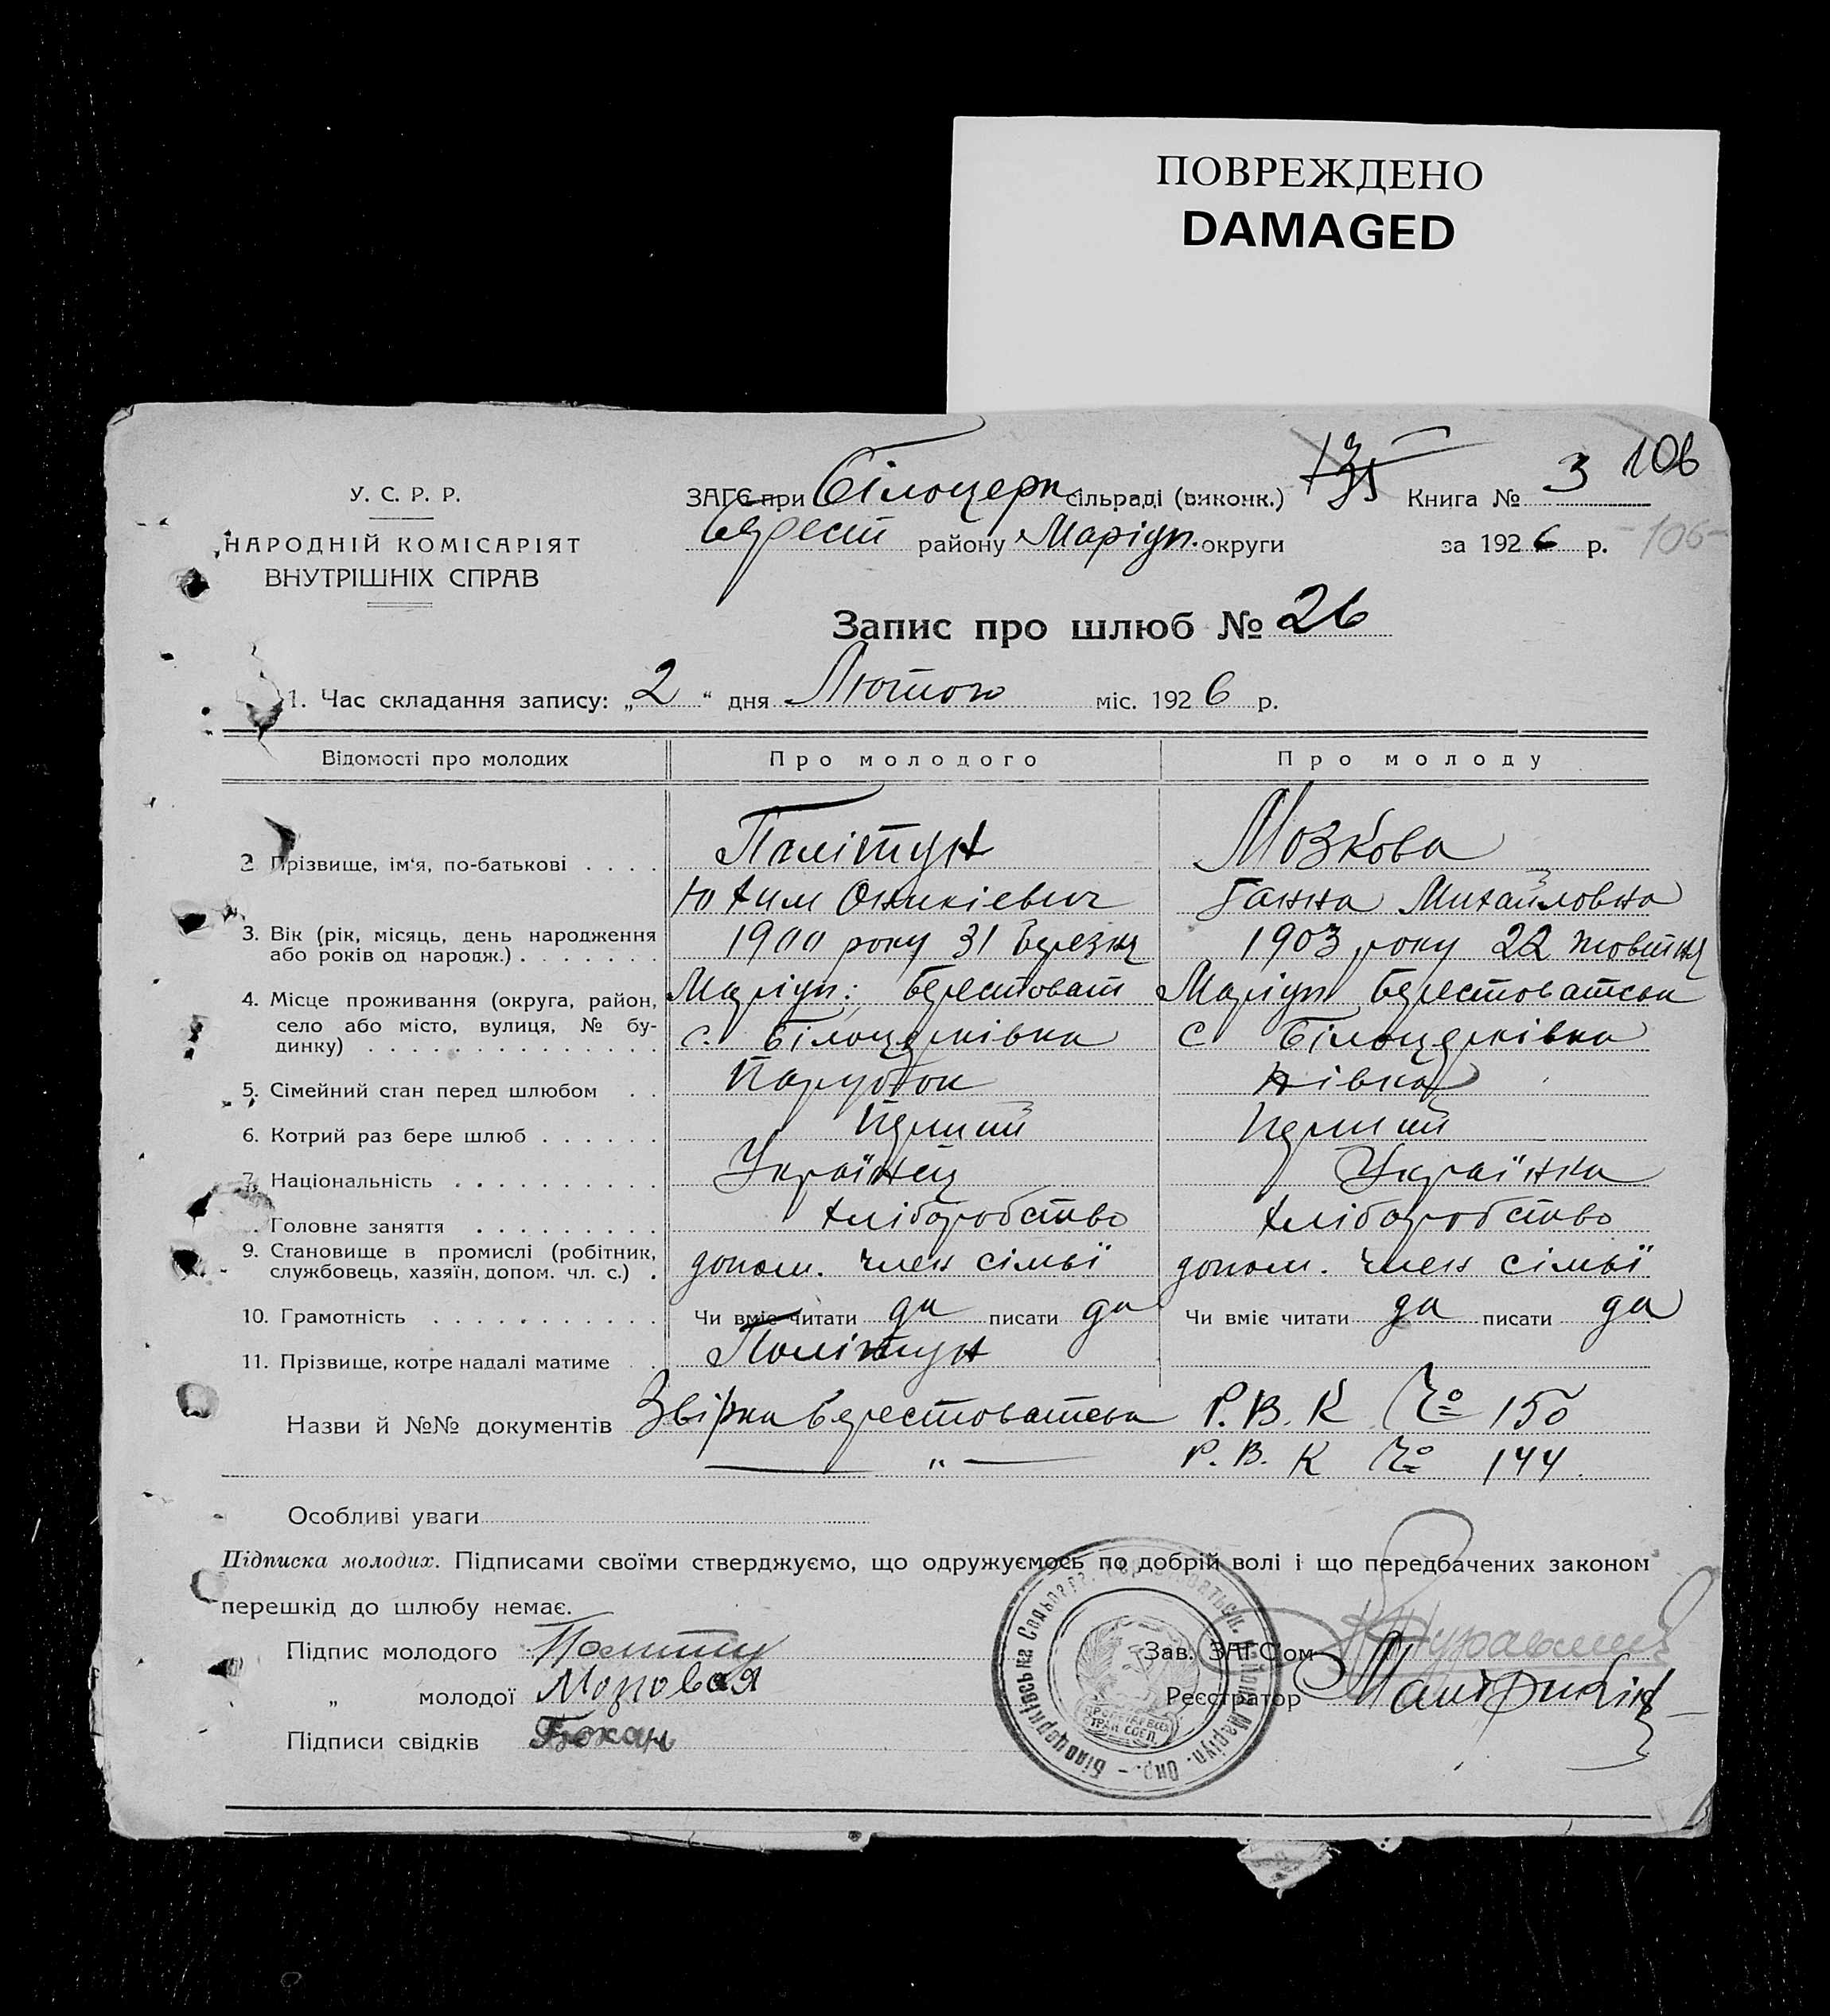 ПОВРЕЖДЕНО
DAMAGED
У. С. Р. Р.
НАРОДНІЙ КОМІСАРІЯТ
ВНУТРІШНІХ СПРАВ
ЗАГС при Білоцерк сільраді (виконк.) Книга № 3 106
Берест району Маріуп. округи за 1926 р. -106-
Запис про шлюб № 26
1. Час складання запису: „2“ дня Лютого міс. 1926 р.
Відомості про молодих Про молодого Про молоду
2 Прізвище, ім'я, по-батькові . . . . Мозкова
Юхим Оникієвич Ганна Михайловна
3. Вік (рік, місяць, день народження 1900 року 31 березня 1903 року 22 жовтня
або років од народж.) . . . . . . .
4. Місце проживання (округа, район, Маріуп: Берестоват Маріуп Берестоватськ
село або місто, вулиця, № бу- с. Білоцерківка с Білоцерківка
динку) . . . . . . . . . . . . . .
5. Сімейний стан перед шлюбом . . Парубок дівка
6. Котрий раз бере шлюб . . . . . . Перший Перший
7. Національність . . . . . . . . . . Українец Українка
Головне заняття . . . . . . . . . хліборобство хліборобство
9. Становище в промислі (робітник, допом. член сімьї допом. член сімьї
службовець, хазяїн, допом. чл. с.) .
10. Грамотність . . . . . . . . . . . Чи вміє читати да писати да Чи вміє читати да писати да
11. Прізвище, котре надалі матиме . .
Назви й №№ документів Звірка Берестоватськ Р. В. К № 150
— „ — Р. В. К № 144
Особливі уваги
Підписка молодих. Підписами своїми стверджуємо, що одружуємось по добрій волі і що передбачених законом
перешкід до шлюбу немає.
Підпис молодого
„ молодої
Підписи свідків
Зав. ЗАГС'ом
Реєстратор
Білоцерківська Сільрада Берестоватськ. Району Маріуп. Окр.
ПРОЛЕТАРІ ВСЕХ
СТРАН СОЕД.